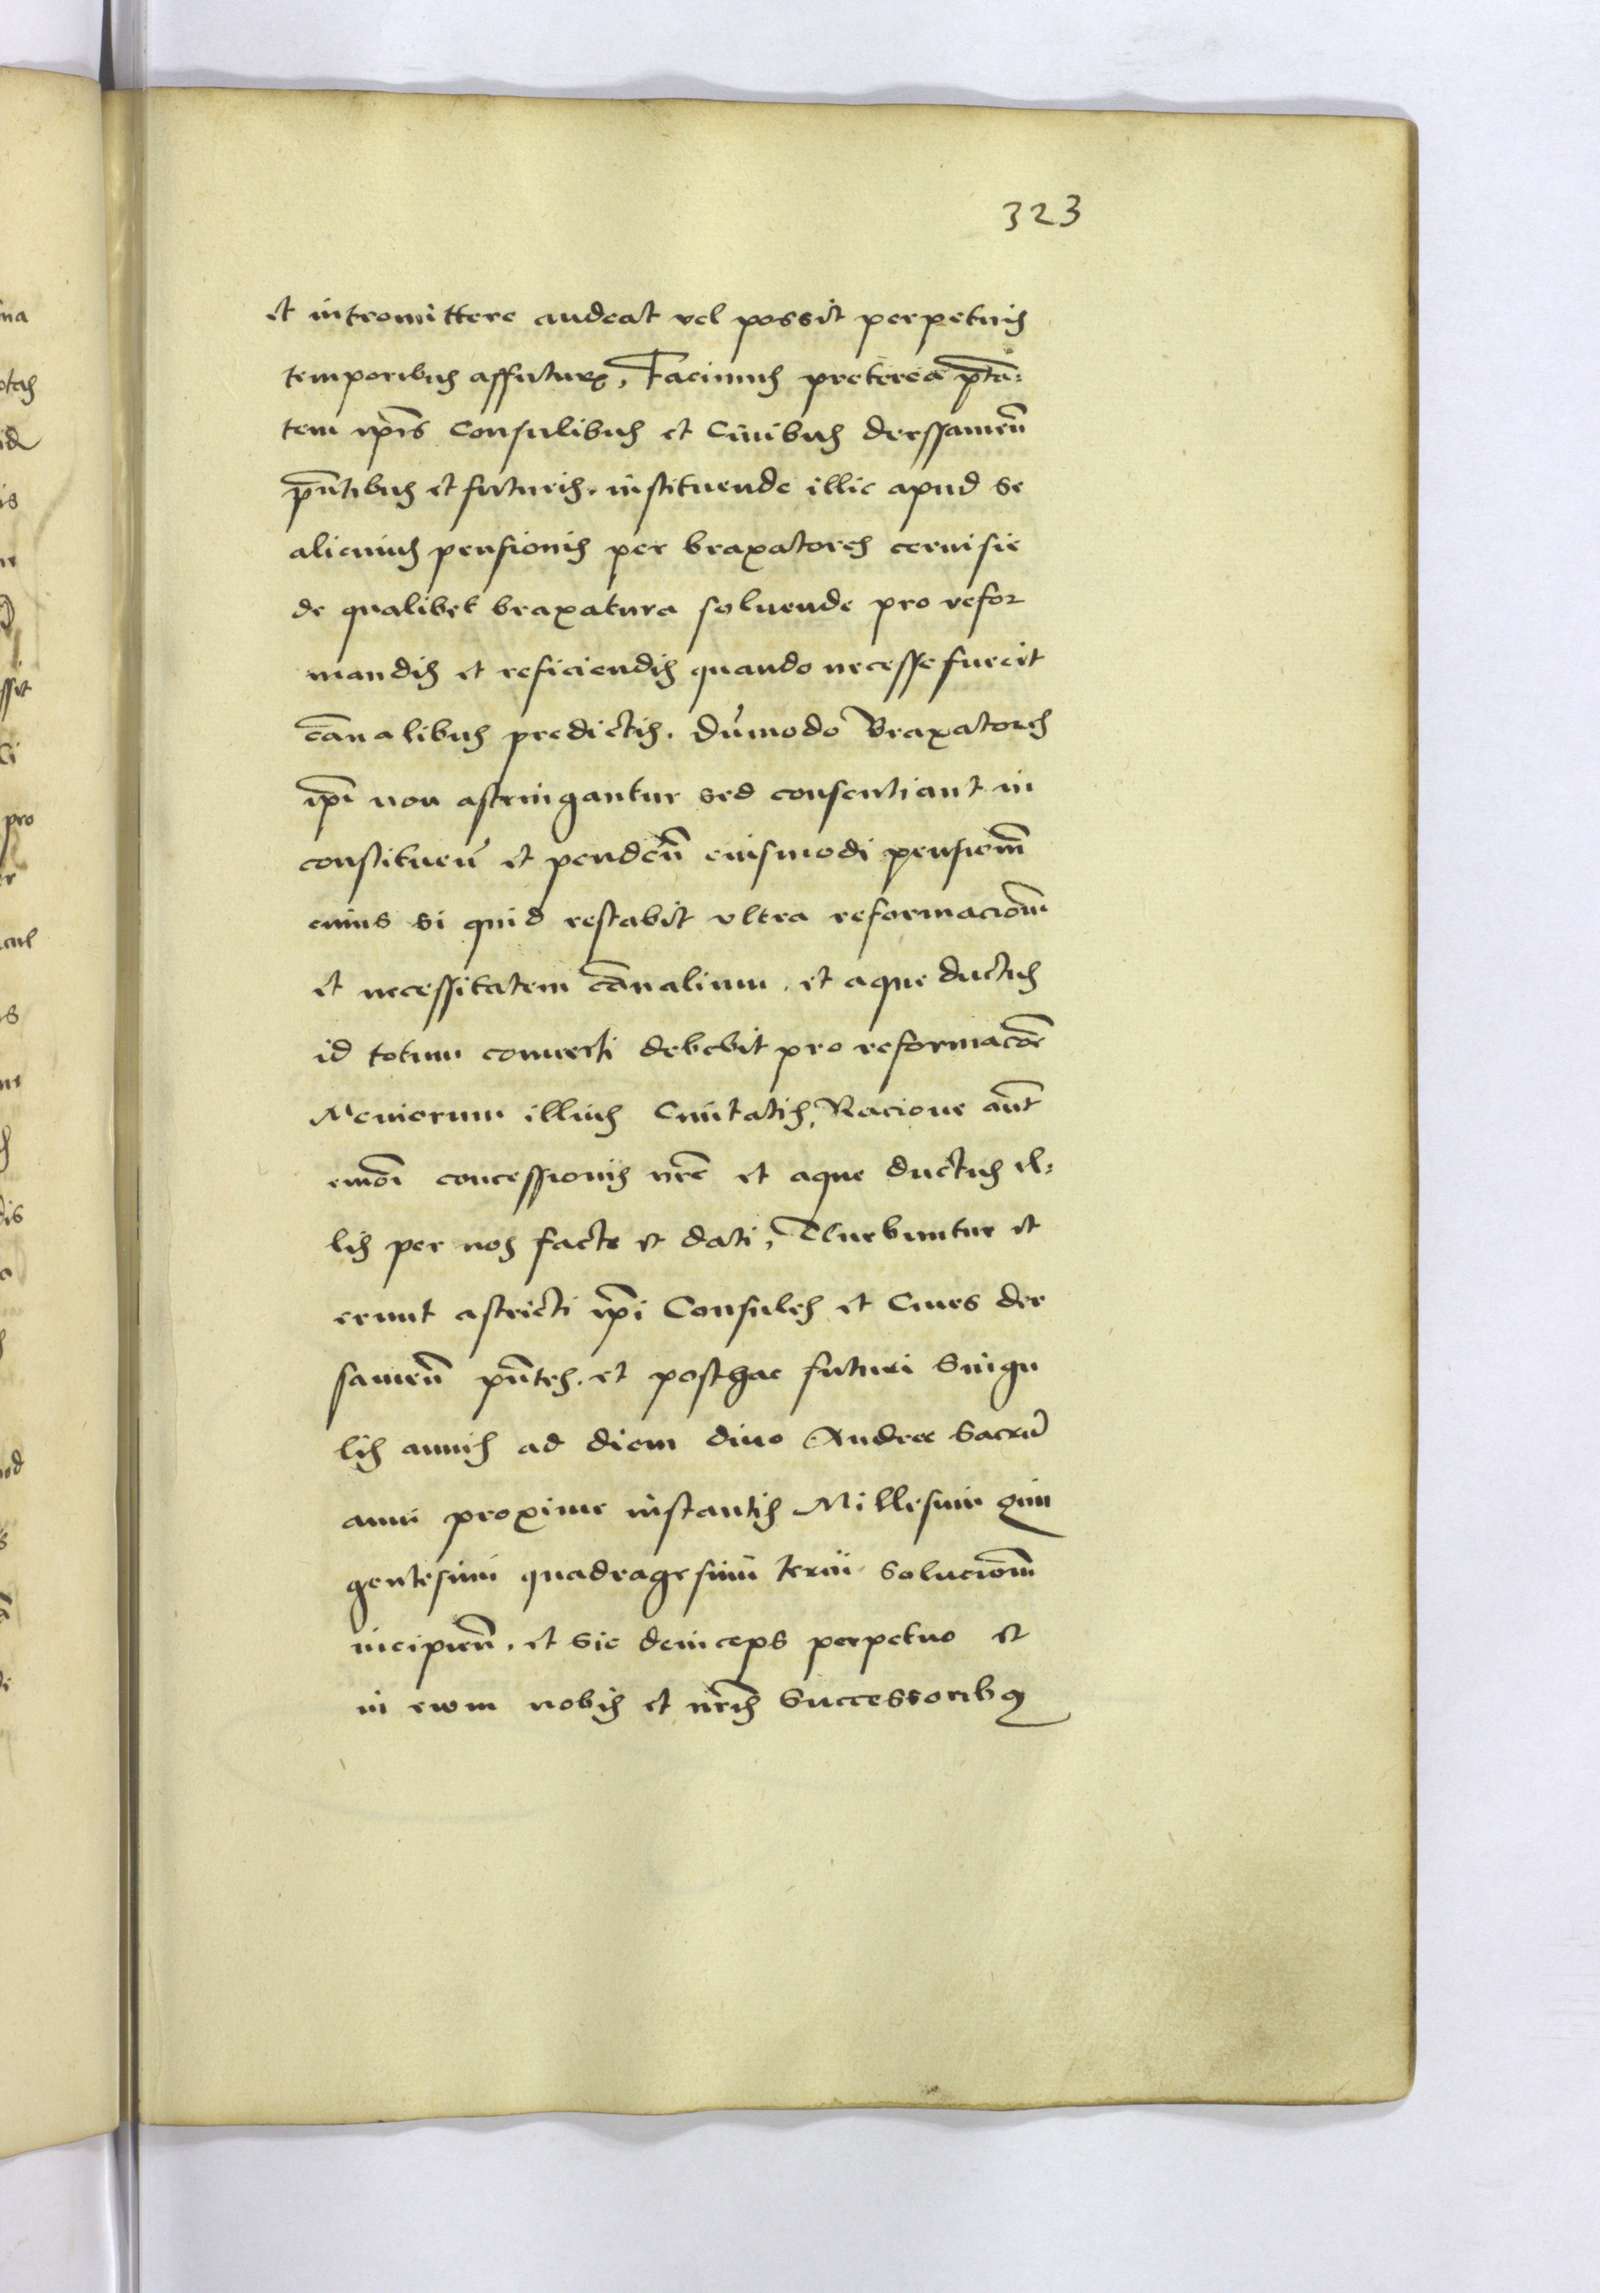 323
et intromittere audeat vel possit perpetuis
temporibus affuturis. Facimus preterea p̅ta:
tem ip̅is Consulibus et Ciuibus derssamen̅
pn̅tibus et futuris. instituende illic apud se
alicuius pensionis per braxatores ceruisie
de qualibet braxatura soluende pro refor
mandis et reficiendis quando necesse fuerit
can̅alibus predictis. Dum̅odo Braxatores
ip̅i non astringantur sed consentiant in
constituen̅ et penden̅ eiusmodi pensiom̅
cuius si quid restabit vltra reformaciom̅
et necessitatem can̅alium. et aque ductus
id totum conuerti debebit pro reformac̅oe
Meniorum illius Ciuitatis, Racione aut̅
eiusmo̅i concessionis nr̅e et aque ductus il:
lis per nos facte et dati, Tenebuntur et
erunt astricti ip̅i Consules et Ciues der
samen̅ pn̅tes. et posthac futuri Singu
lis annis ad diem diuo Andree Sacru̅
anni proxime instantis Millesimi quin
gentesimi quadragesimi tercii soluciom̅
incipien̅. et sic deinceps perpetuo et
in euum nobis et nr̅is Successoribus